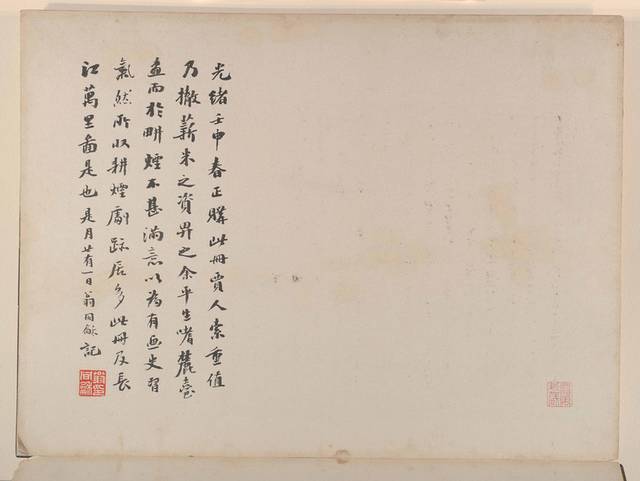 光緒壬申春正購此冊賈人索重值
乃撤薪米之資畀之余平生嗜麓臺
畫而於畊煙不甚滿意以為有畫史習
氣然所收耕煙劇跡居多此冊及長
江萬里圖是也是月廿有一日翁同龢記